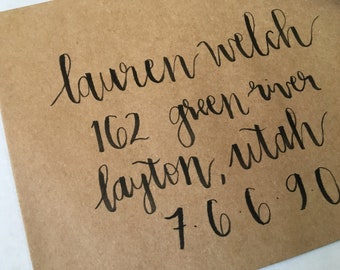 lauren welch
162 green river
layton, utah
7.6.6.9.0